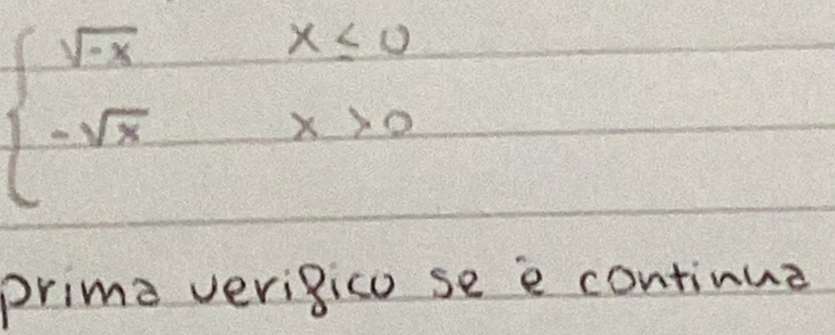 √-x x ≤ 0
-√x x > 0
prima verifico se è continua